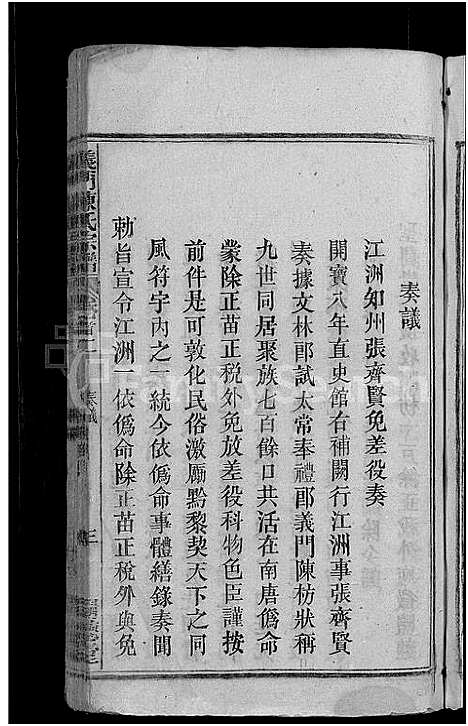 奏議
江洲知州張齊賢免差役奏
開寶八年直史館右補闕行江洲事張齊賢
奏據文林郎試太常奉禮郎義門陳枋狀稱
九世同居聚族七百餘口共活在南唐僞命
蒙除正苗正税外免放差役科物色臣謹按
前件是可敦化民俗激厲黔黎契天下之同
風符宇內之一統今依僞命事體繕錄奏聞
勅旨宣令江洲一依僞命除正苗正税外與免
義門陳氏宗譜